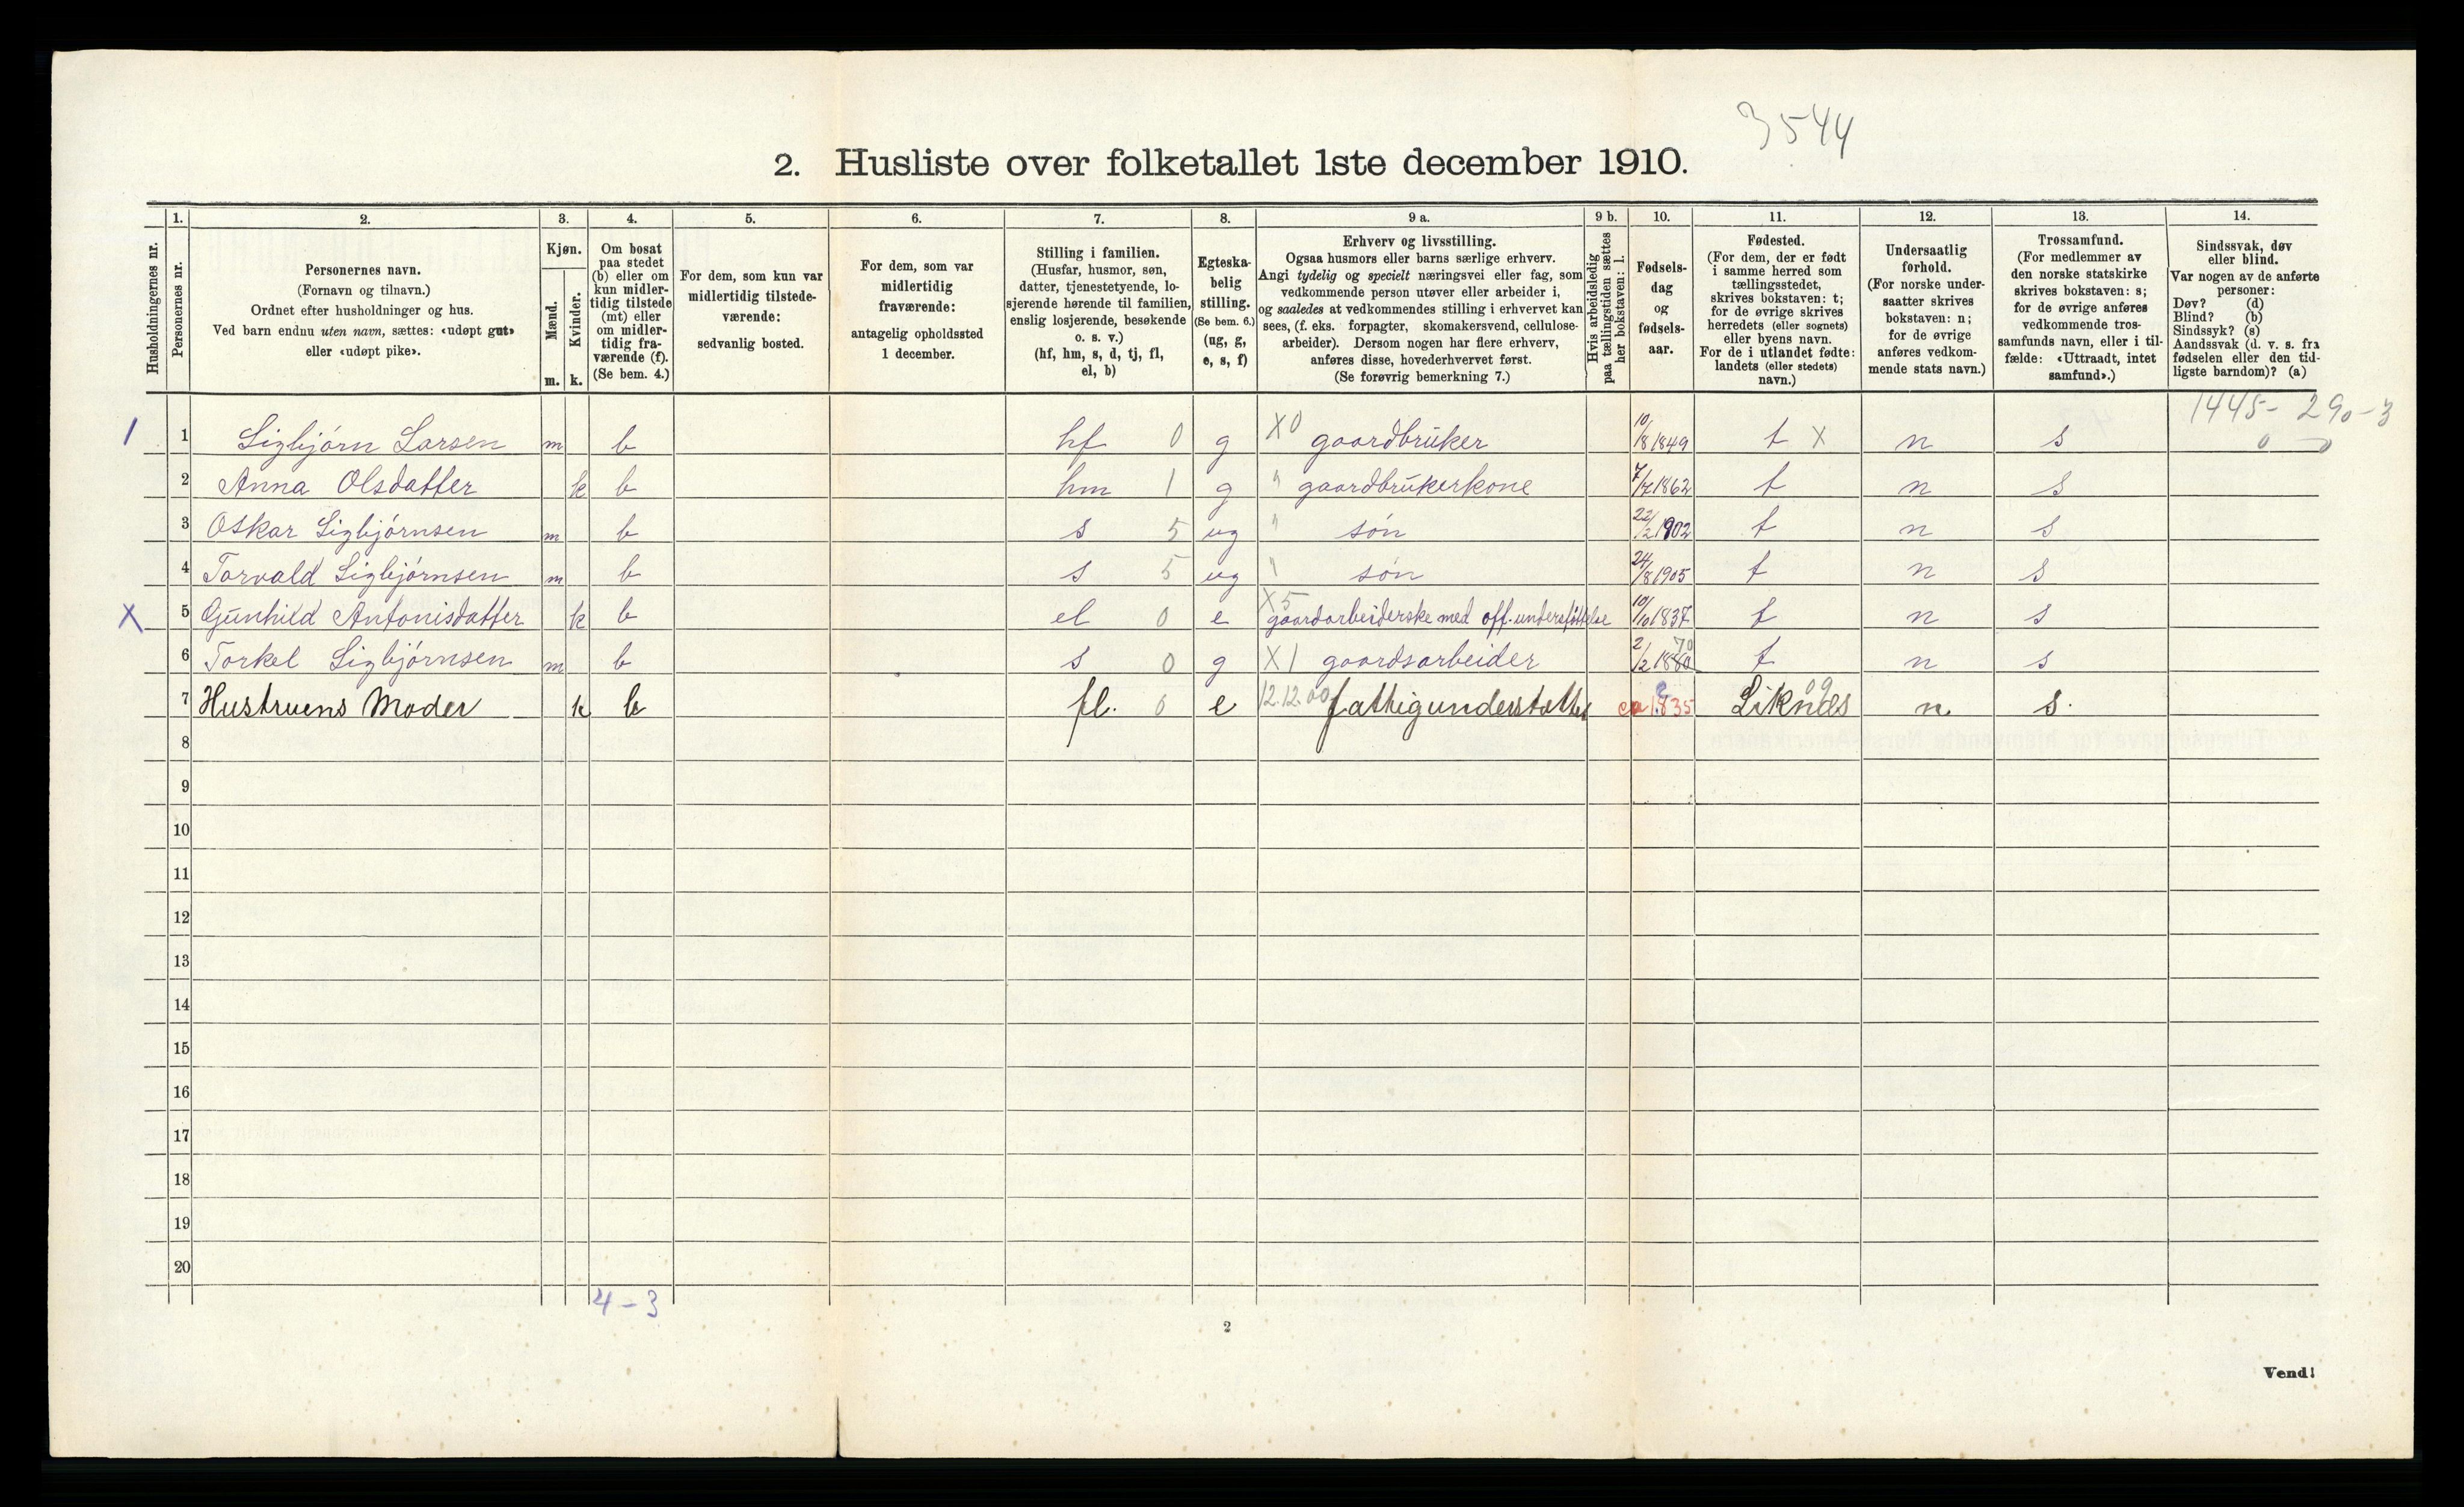 3544
2. Husliste over folketallet 1ste december 1910.
Husholdningernes nr.
1. Personernes nr.
2. Personernes navn.
(Fornavn og tilnavn.)
Ordnet efter husholdninger og hus.
Ved barn endnu uten navn, sættes: «udøpt gut»
eller «udøpt pike».
3. Kjøn.
Mænd. m.
Kvinder. k.
4. Om bosat
paa stedet
(b) eller om
kun midler-
tidig tilstede
(mt) eller
om midler-
tidig fra-
værende (f).
(Se bem. 4.)
5. For dem, som kun var
midlertidig tilstede-
værende:
sedvanlig bosted.
6. For dem, som var
midlertidig
fraværende:
antagelig opholdssted
1 december.
7. Stilling i familien.
(Husfar, husmor, søn,
datter, tjenestetyende, lo-
sjerende hørende til familien,
enslig losjerende, besøkende
o. s. v.)
(hf, hm, s, d, tj, fl,
el, b)
8. Egteska-
belig
stilling.
(Se bem. 6.)
(ug, g,
e, s, f)
9 a. Erhverv og livsstilling.
Ogsaa husmors eller barns særlige erhverv.
Angi tydelig og specielt næringsvei eller fag, som
vedkommende person utøver eller arbeider i,
og saaledes at vedkommendes stilling i erhvervet kan
sees, (f. eks. forpagter, skomakersvend, cellulose-
arbeider). Dersom nogen har flere erhverv,
anføres disse, hovederhvervet først.
(Se forøvrig bemerkning 7.)
9 b. Hvis arbeidsledig
paa tællingstiden sættes
her bokstaven: l.
10. Fødsels-
dag
og
fødsels-
aar.
11. Fødested.
(For dem, der er født
i samme herred som
tællingsstedet,
skrives bokstaven: t;
for de øvrige skrives
herredets (eller sognets)
eller byens navn.
For de i utlandet fødte:
landets (eller stedets)
navn.)
12. Undersaatlig
forhold.
(For norske under-
saatter skrives
bokstaven: n;
for de øvrige
anføres vedkom-
mende stats navn.)
13. Trossamfund.
(For medlemmer av
den norske statskirke
skrives bokstaven: s;
for de øvrige anføres
vedkommende tros-
samfunds navn, eller i til-
fælde: «Uttraadt, intet
samfund».)
14. Sindssvak, døv
eller blind.
Var nogen av de anførte
personer:
Døv? (d)
Blind? (b)
Sindssyk? (s)
Aandssvak (d. v. s. fra
fødselen eller den tid-
ligste barndom)? (a)
1445 - 290 - 3
1 1 Sigbjörn Larsen m b hf 0 g X0 gaardbruker 10/18 1849 t X n s 0 0
2 Anna Olsdatter k b hm 1 g " gaardbrukerkone 7/7 1862 t n s
3 Oskar Sigbjörnsen m b s 5 ug " søn 22/2 1902 t n s
4 Torvald Sigbjörnsen m b s 5 ug " søn 24/8 1905 t n s
X 5 Gunhild Antonisdatter k b el 0 e X5 gaardarbeiderske med off. understøttelse 10/10 1837 t n s
6 Torkel Sigbjörnsen m b s 0 g X1 gaardsarbeider 2/2 1880 70 t n s
7 Hustruens Moder k b fl. 0 e 12.12.00 fattigunderstøttet ca 1835 ? Liknes 09 n s.
8
9
10
11
12
13
14
15
16
17
18
19
20
4 - 3
2
Vend!